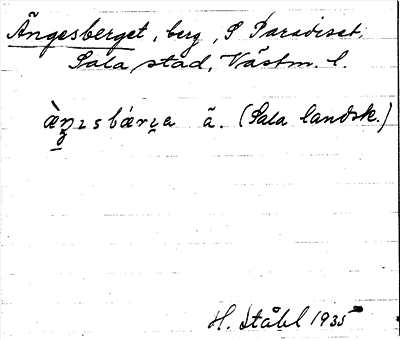 Ängesberget, berg, S Paradiset,
Sala stad, Västm. l.
ä. (Sala landsk.)
H. Ståhl 1935